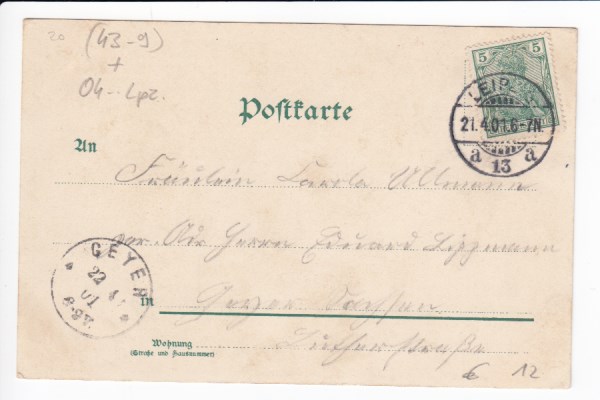 20
(43-9)
+
04.. Lpz.
5
LEIPZ
21.4.01.6-7N.
a 13 a
Postkarte
An
Fräulein Carola Ullmann
Adr. Herrn Eduard Lippmann
GEYER
22 4
01
in Geyer Sachsen
Wohnung
(Straße und Hausnummer)
Lutherstraße
€ 12